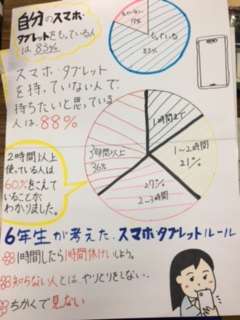 自分のスマホ・
タブレットをもっている人
は83%
もっている
83%
もっていない
17%
スマホ、タブレット
を持っていない人で
持ちたいと思っている
人は88%
1時間まで
1〜2時間
21%
27%
2〜3時間
3時間以上
36%
2時間以上
使っている人は
60%をこえて
いることが
わかりました。
6年生が考えた、スマホ・タブレットルール
1時間したら1時間休けいしよう。
知らない人とはやりとりをしない。
ちかくで見ない